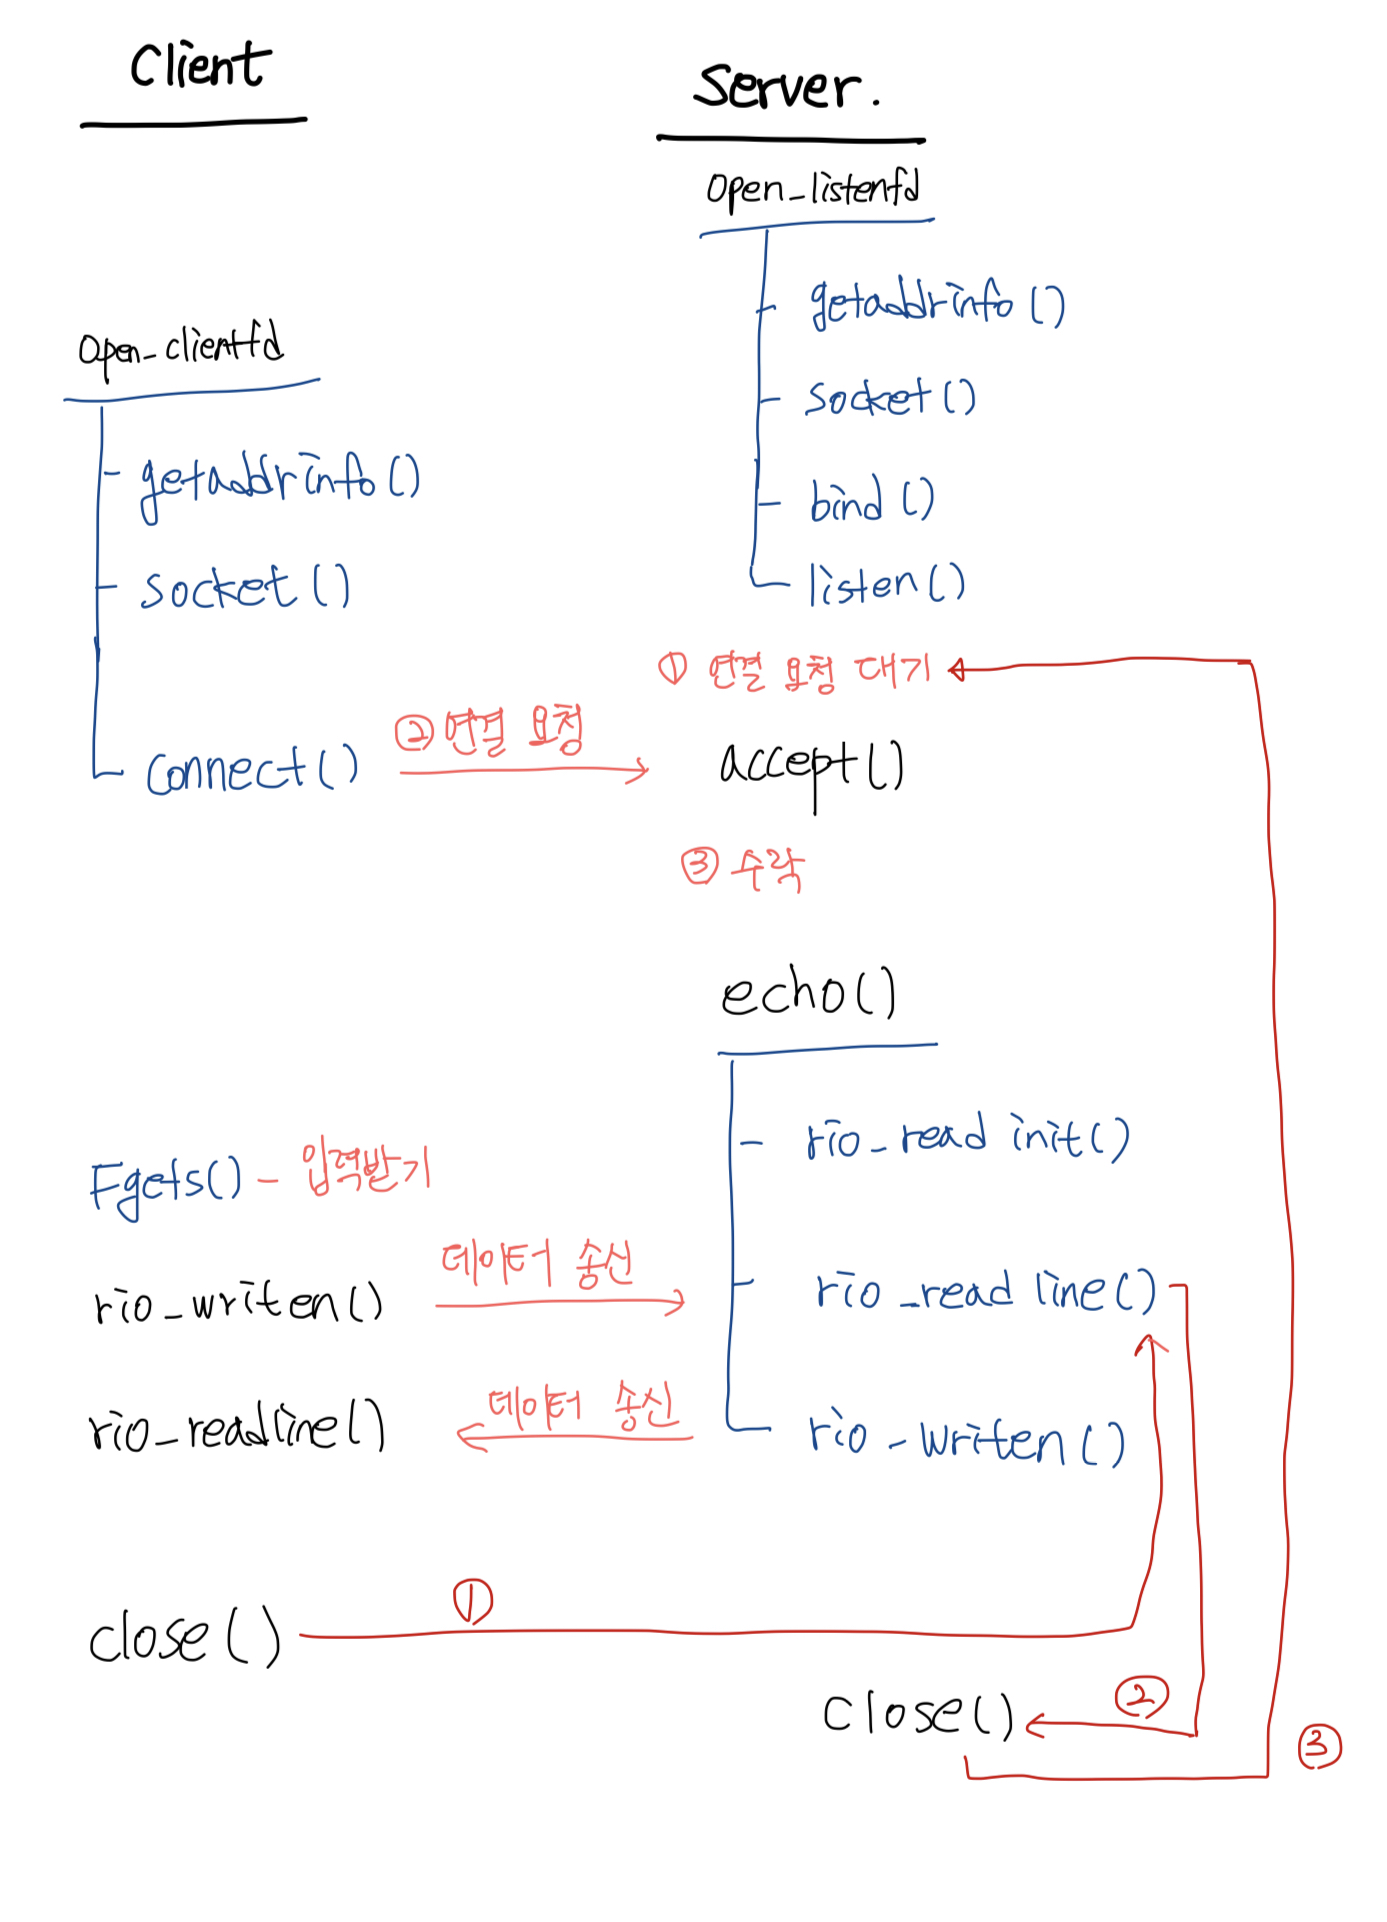 Client
Server.
open_listenfd
getaddrinfo()
socket()
bind()
listen()
open_clientfd
getaddrinfo()
socket()
connect()
② 연결 요청
① 연결 요청 대기
accept()
③ 수락
echo()
rio_read init()
rio_read line()
rio_writen()
Fgets() - 입력받기
rio_writen()
데이터 송신
rio_readline()
데이터 송신
close()
①
close()
②
③